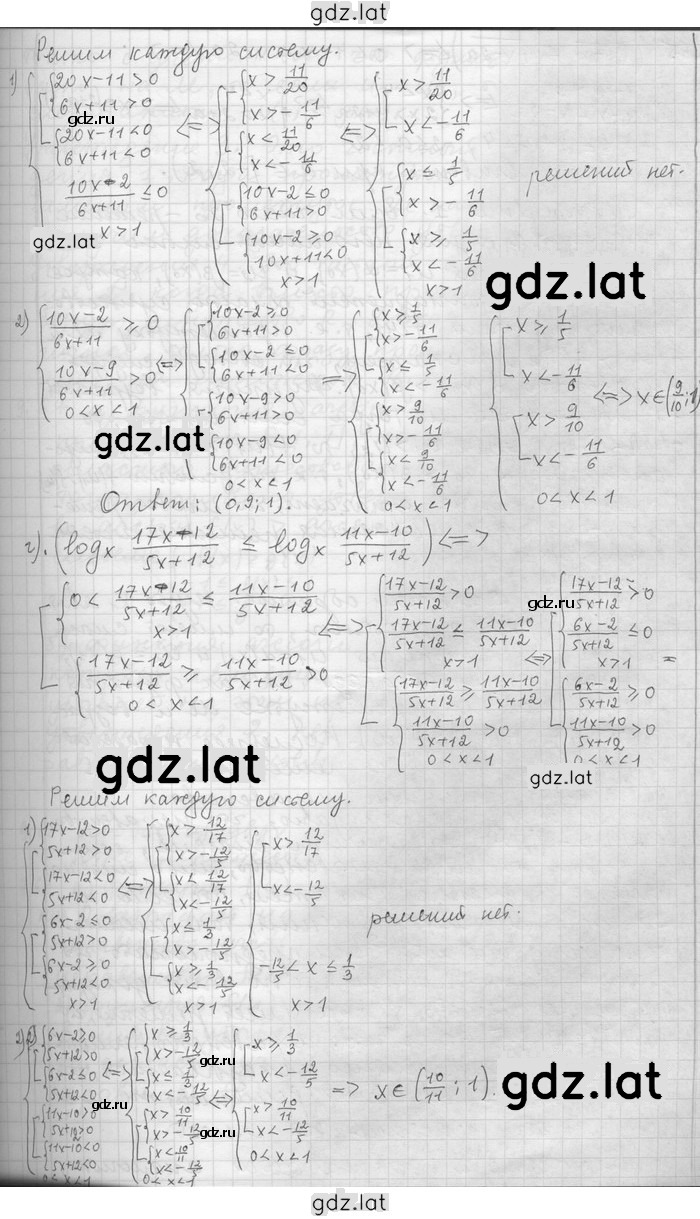 gdz.lat
Решим каждую систему.
1) { [ { 20x-11>0 ; 6x+11>0 ; { 20x-11<0 ; 6x+11<0 ; (10x-2)/(6x+11) ≤ 0 ; x>1 <=> { [ { x > 11/20 ; x > -11/6 ; { x < 11/20 ; x < -11/6 ; [ { 10x-2 ≤ 0 ; 6x+11>0 ; { 10x-2 ≥ 0 ; 10x+11<0 ; x>1 <=> { [ x > 11/20 ; x < -11/6 ; [ { x ≤ 1/5 ; x > -11/6 ; { x ≥ 1/5 ; x < -11/6 ; x>1 решений нет.
gdz.lat
gdz.ru
gdz.lat
2) { (10x-2)/(6x+11) ≥ 0 ; (10x-9)/(6x+11) > 0 ; 0<x<1 <=> { [ { 10x-2 ≥ 0 ; 6x+11>0 ; { 10x-2 ≤ 0 ; 6x+11<0 ; [ { 10x-9>0 ; 6x+11>0 ; { 10x-9<0 ; 6x+11<0 ; 0<x<1 => { [ { x ≥ 1/5 ; x > -11/6 ; { x ≤ 1/5 ; x < -11/6 ; [ { x > 9/10 ; x > -11/6 ; { x < 9/10 ; x < -11/6 ; 0<x<1 { [ x ≥ 1/5 ; x < -11/6 ; [ x > 9/10 ; x < -11/6 ; 0<x<1 <=> x∈(9/10; 1)
gdz.lat
Ответ: (0,9; 1).
г). (log_x (17x-12)/(5x+12) ≤ log_x (11x-10)/(5x+12)) <=>
[ { 0 < (17x-12)/(5x+12) ≤ (11x-10)/(5x+12) ; x>1 ; { (17x-12)/(5x+12) ≥ (11x-10)/(5x+12) > 0 ; 0<x<1 <=> [ { (17x-12)/(5x+12) > 0 ; (17x-12)/(5x+12) ≤ (11x-10)/(5x+12) ; x>1 ; { (17x-12)/(5x+12) ≥ (11x-10)/(5x+12) ; (11x-10)/(5x+12) > 0 ; 0<x<1 <=> [ { (17x-12)/(5x+12) > 0 ; (6x-2)/(5x+12) ≤ 0 ; x>1 ; { (6x-2)/(5x+12) ≥ 0 ; (11x-10)/(5x+12) > 0 ; 0<x<1 =
gdz.ru
gdz.lat
gdz.lat
Решим каждую систему.
1) { [ { 17x-12>0 ; 5x+12>0 ; { 17x-12<0 ; 5x+12<0 ; [ { 6x-2 ≤ 0 ; 5x+12>0 ; { 6x-2 ≥ 0 ; 5x+12<0 ; x>1 <=> { [ { x > 12/17 ; x > -12/5 ; { x < 12/17 ; x < -12/5 ; [ { x ≤ 1/3 ; x > -12/5 ; { x ≥ 1/3 ; x < -12/5 ; x>1 { [ x > 12/17 ; x < -12/5 ; -12/5 < x ≤ 1/3 ; x>1 решений нет.
2) { [ { 6x-2 ≥ 0 ; 5x+12>0 ; { 6x-2 ≤ 0 ; 5x+12<0 ; [ { 11x-10>0 ; 5x+12>0 ; { 11x-10<0 ; 5x+12<0 ; 0<x<1 <=> { [ { x ≥ 1/3 ; x > -12/5 ; { x ≤ 1/3 ; x < -12/5 ; [ { x > 10/11 ; x > -12/5 ; { x < 10/11 ; x < -12/5 ; 0<x<1 <=> { [ x ≥ 1/3 ; x < -12/5 ; [ x > 10/11 ; x < -12/5 ; 0<x<1 => x∈(10/11; 1).
gdz.ru
gdz.ru
gdz.ru
gdz.lat
gdz.lat